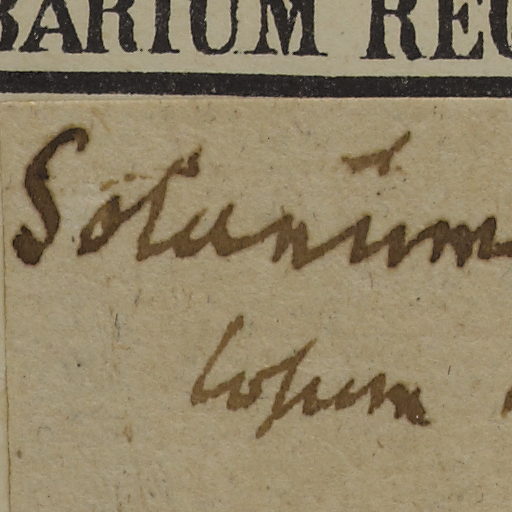 BARIUM REG
Solanum
losum